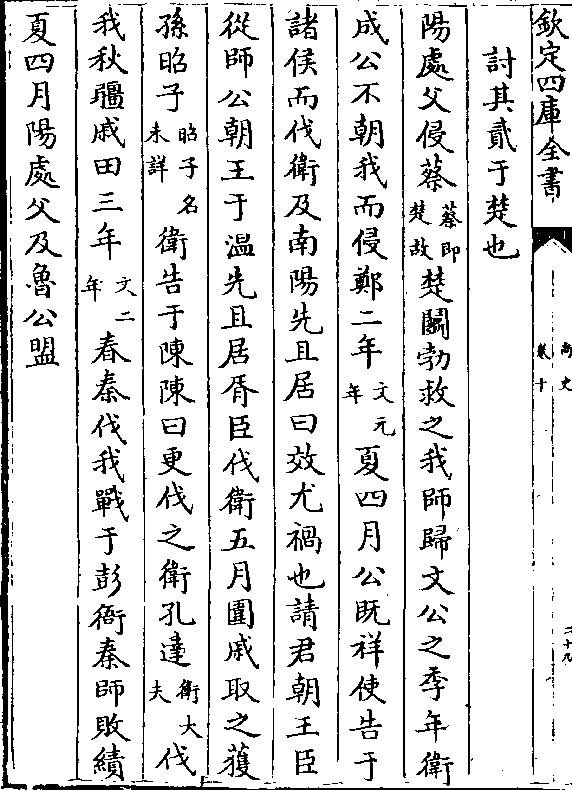 欽定四庫全書
尚史
卷十
二十九
討其貳于楚也
陽處父侵蔡蔡即楚故楚鬭勃救之我師歸文公之季年衛
成公不朝我而侵鄭二年文元年夏四月公既祥使告于
諸侯而伐衛及南陽先且居曰效尤禍也請君朝王臣
從師公朝王于溫先且居胥臣伐衛五月圍戚取之獲
孫昭子昭子名未詳衛告于陳陳曰更伐之衛孔達衛大夫伐
我秋疆戚田三年文二年春秦伐我戰于彭衙秦師敗績
夏四月陽處父及魯公盟